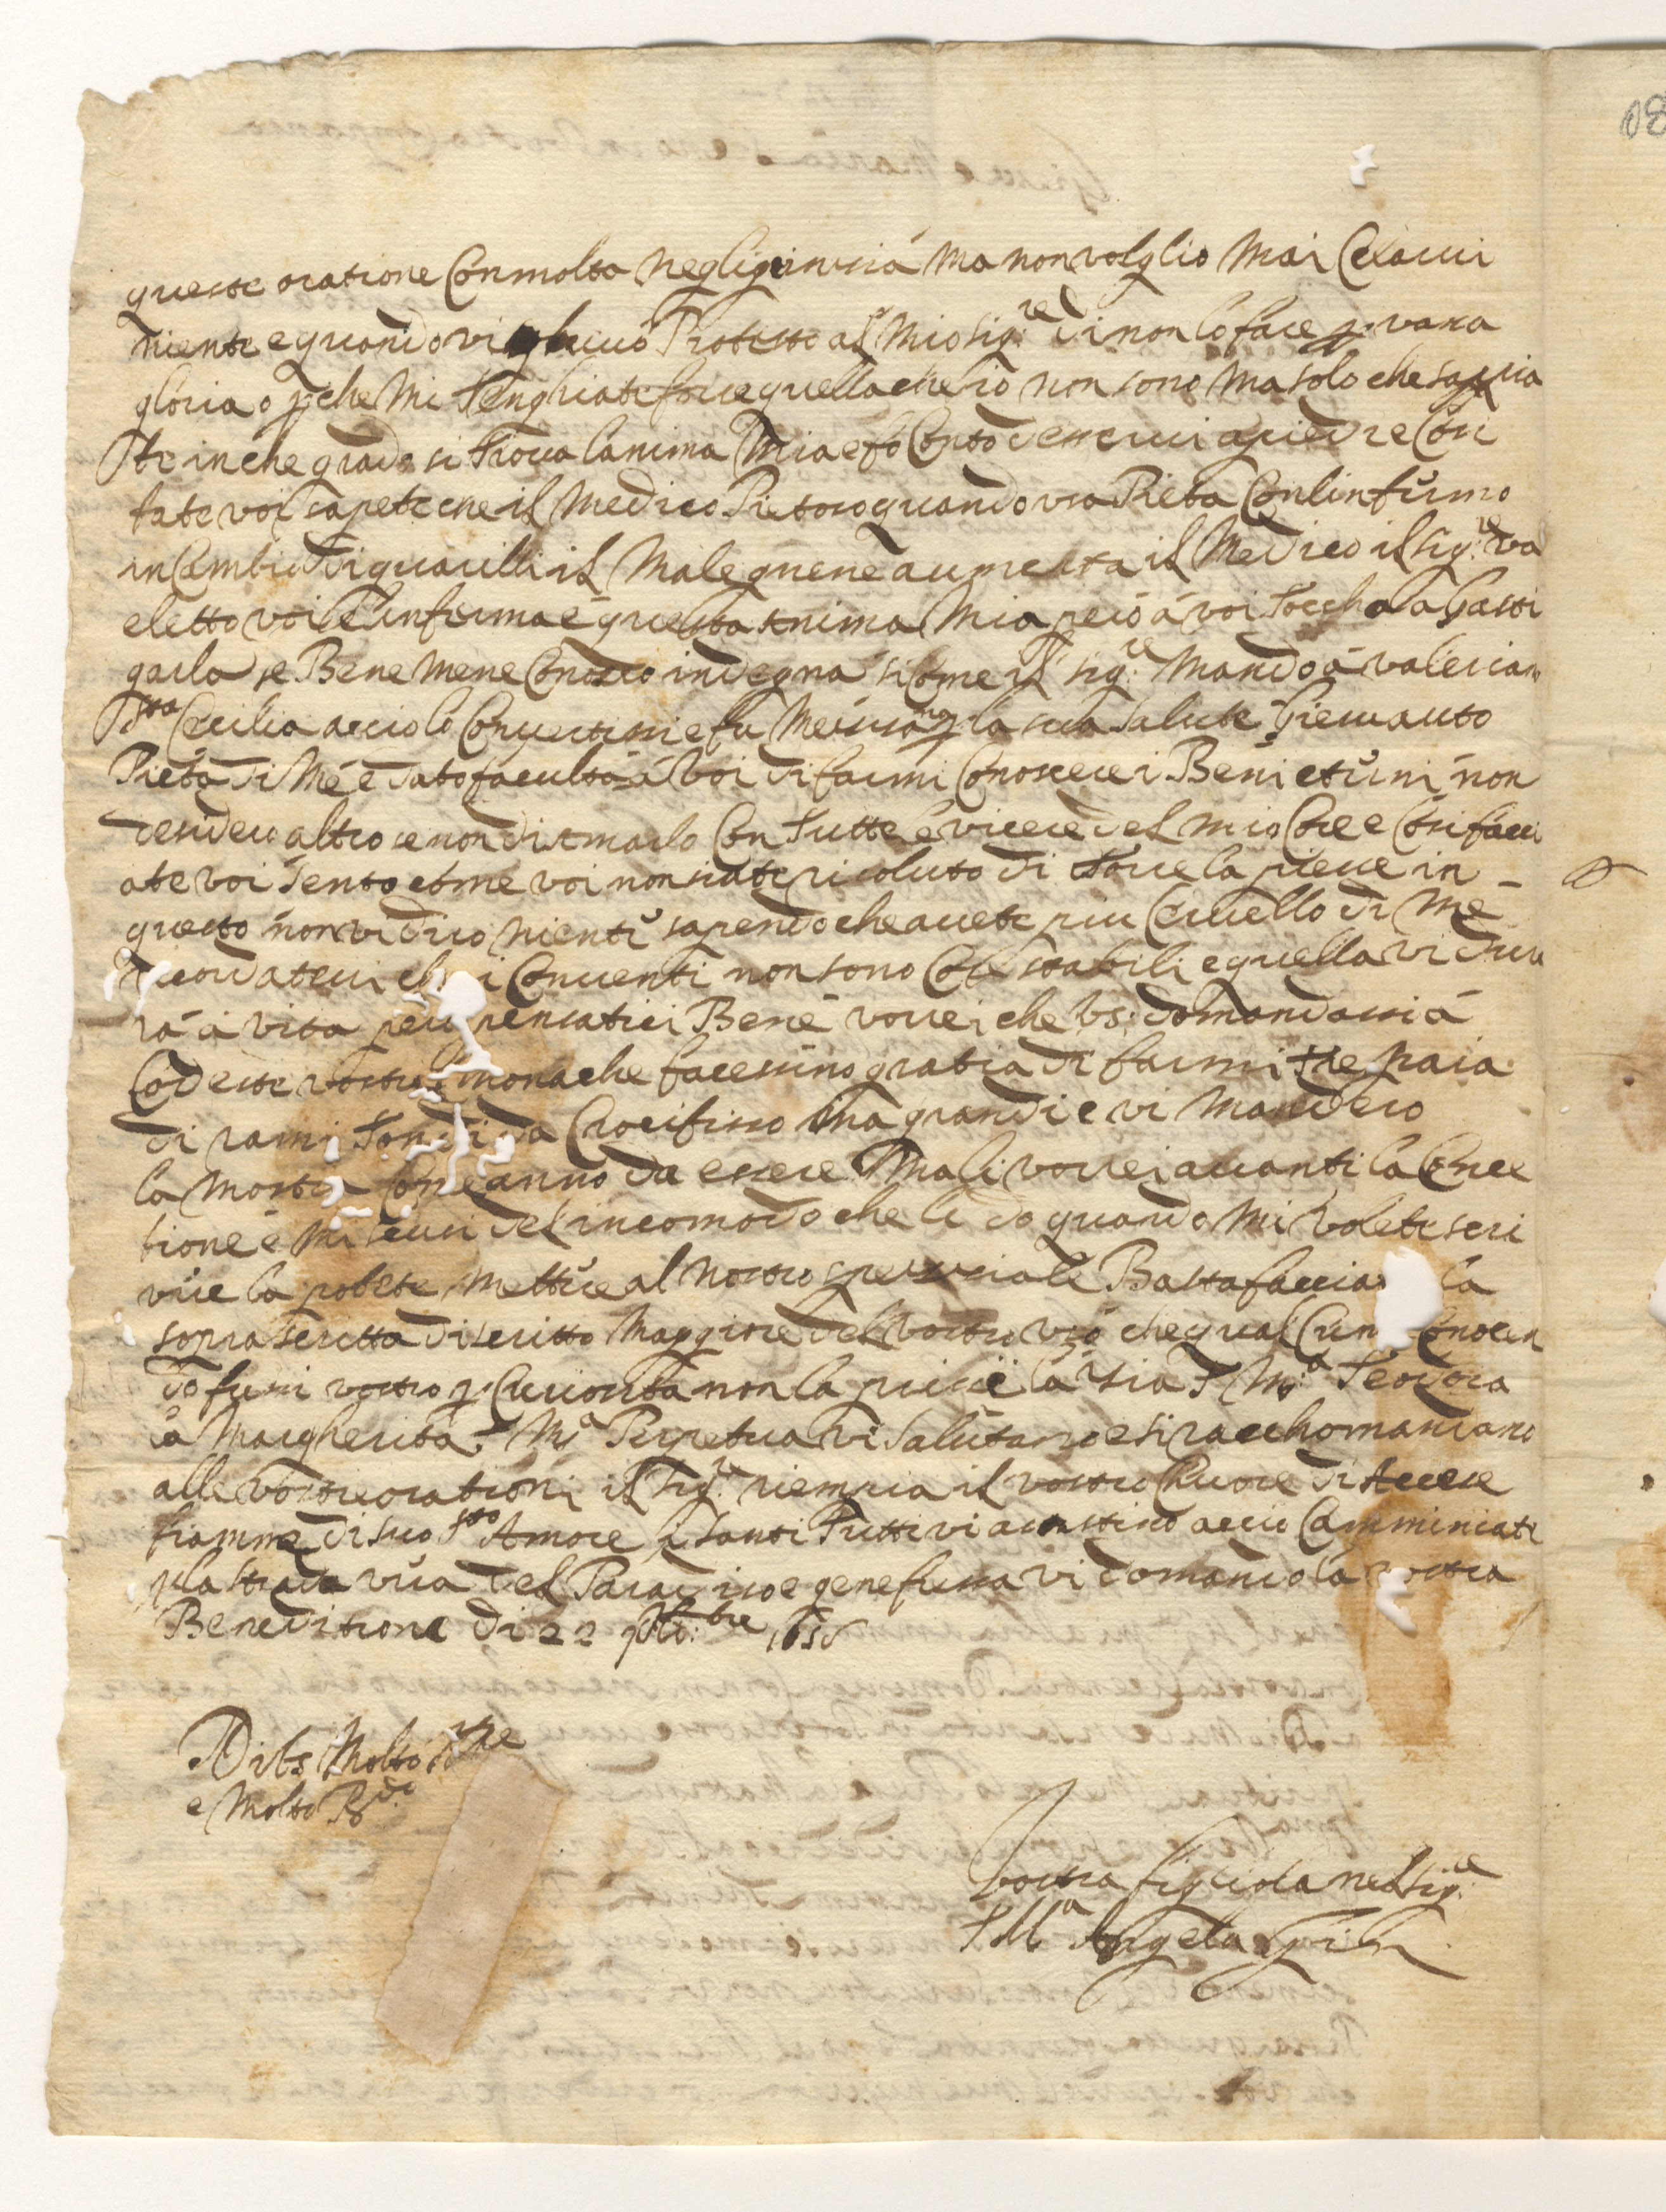 queste oratione Con molta negligenzia ma non volglio mai Celarui
niente e quando vi Protesto al Mio sig.re di non lo fare p vana
gloria o p che mi tenghiate forse quella che io non sono ma solo che sappia
te in che grado si troua lanima Mia e fo Conto desserui a piedi e Con
fate voi sapete che il Medico Pietoso quando usa Pieta Conlinfermo
in Cambio di guarilli il Male gnene aumenta il Medico il sig.re va
eletto voi e linferma e questa anima Mia però á voi toccha a gasti
garla se Bene mene Conosco indegna si Come il sig.re Mando á valerian
o Sta Cecilia accio lo Conuertissi e fu Mezzana p la sua salute
Pieta di Mé e dato faculta á Voi di farmi Conoscere i Beni eterni non
desidero altro se non di Amarlo Con tutte le vicere del mio Core e Cosi facci
ate voi sento Come voi non siate risoluto di torre la pieue in
questo non vi dico niente sapendo che auete piu Ceruello di Me
ricordateui che i Conuenti non sono Cose stabili e quella vi dure
rá á vita però pensatici Bene vorrei che Vs: domandassi á
Codeste vostre monache facessino gratia di farmi tre paia
di rami tondi da Crocifisso Ma grandi e vi Mandero
la Mostra Come anno da essere Ma li vorrei auanti la Conce
tione e Mi scusi del incomodo che li do quando Mi volete scri
vere la potete mettere al nostro speziale Basta facciate la
sopra scritta di scritto Maggiore del vostro vso che qual Cuno Conocen
dolo fussi vostro p Curiosita non la pricie la zia S Ma Teodora
la Margherita S Ma Perpetua vi salutano e si racchomandano
alle vostre orationi il sig.re riempia il vostro Cuore di Accese
fiamme di suo Sto Amore i santi tutti vi assistino accio Camminiate
p la strada vera del Paradiso e genefressa vi domando la vostra
Beneditione di 22 1656
Di Vs Molto Ill.re
e Molto Rdo
Vostra figliola nel sig.re
S Ma Angela